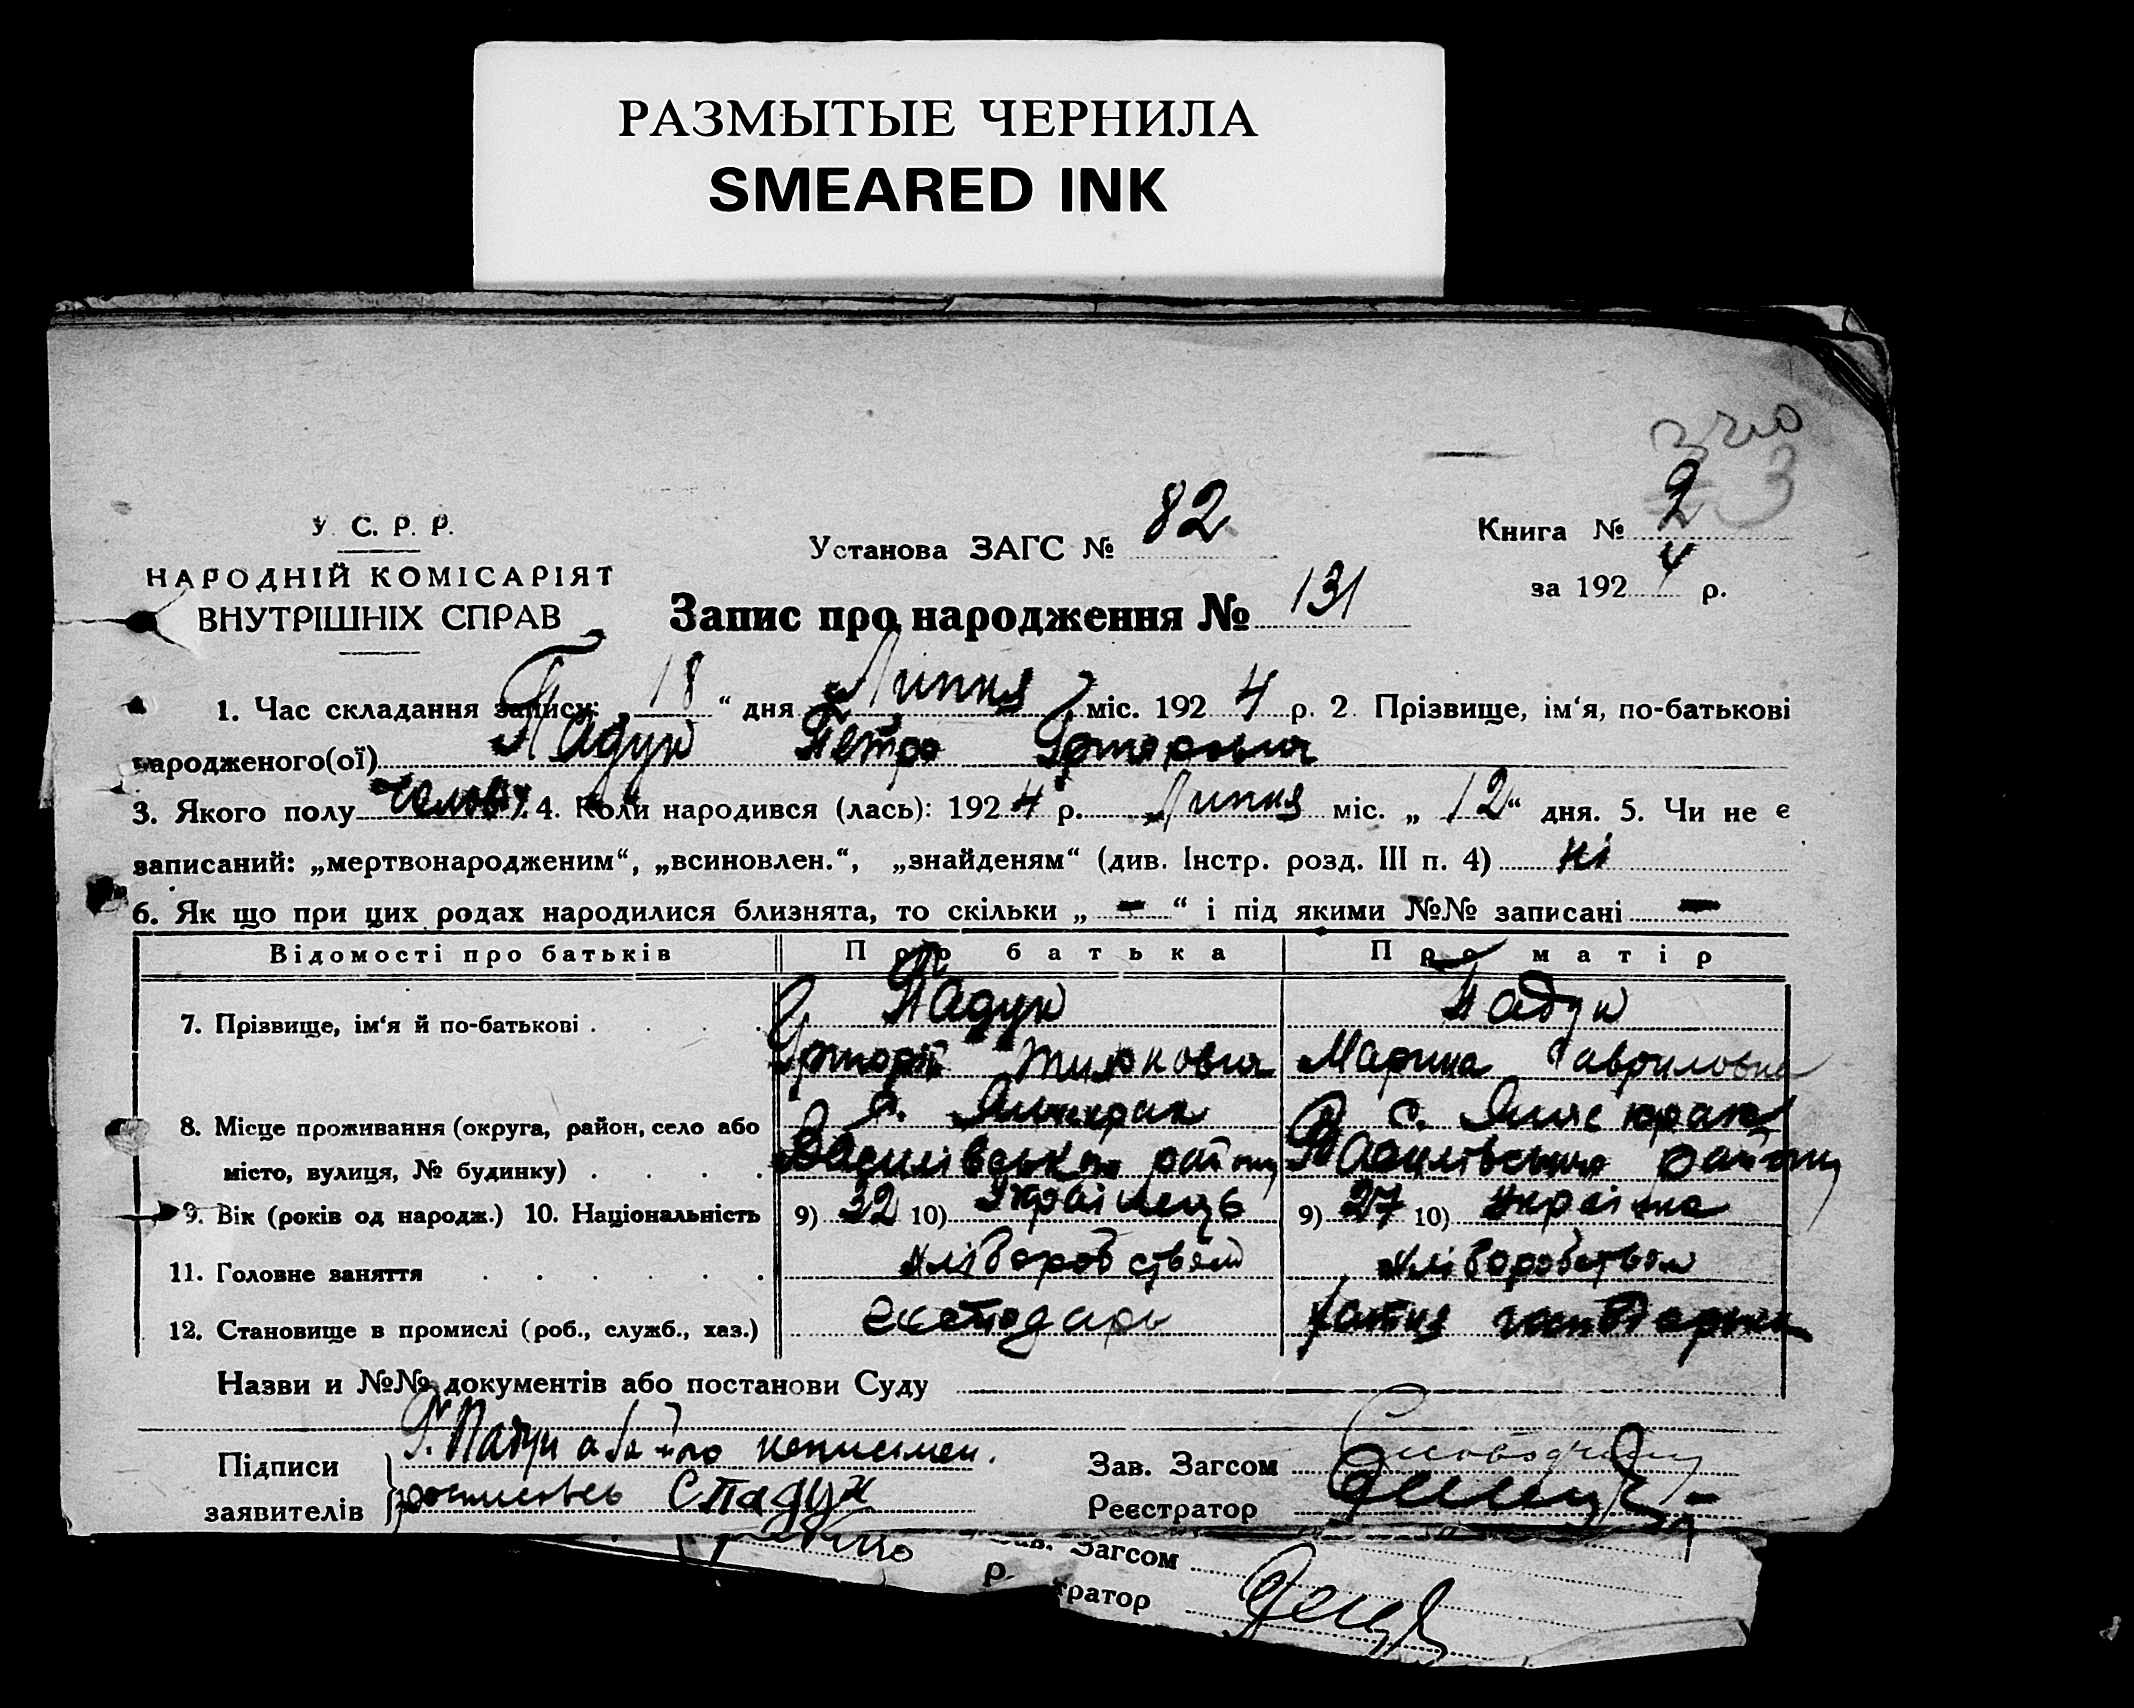 РАЗМЫТЫЕ ЧЕРНИЛА
SMEARED INK
3
У. С. Р. Р.
НАРОДНІЙ КОМІСАРІЯТ
ВНУТРІШНІХ СПРАВ
Установа ЗАГС № 82
Книга № 2
за 1924 р.
Запис про народження № 131
1. Час складання запису: 18 “ дня Липня міс. 1924 р. 2. Прізвище, ім‘я, по-батькові
народженого(ої) Падун Петро
3. Якого полу 4. Коли народився (лась): 1924 р. Липня міс. „ 12 “ дня. 5. Чи не є
записаний: „мертвонародженим“, „всиновлен.“, „знайденям“ (див. Інстр. розд. III п. 4) ні
6. Як що при цих родах народилися близнята, то скільки „ — “ і під якими №№ записані —
Відомості про батьків Про батька Про матір
7. Прізвище, ім‘я й по-батькові . . . . Падун Падун
Марина Гавриловна
8. Місце проживання (округа, район, село або с.
місто, вулиця, № будинку) . . . . Василівського району Василівського району
9. Вік (років од народж.) 10. Національність 9) 32 10) Українець 9) 27 10) Україн
11. Головне заняття . . . . . . хліборобством хліборобством
12. Становище в промислі (роб., служб., хаз.)
Назви и №№ документів або постанови Суду
Підписи Г. Падун неписьмен.
заявителів
Зав. Загсом
Реєстратор
Зав. Загсом
р.
тратор